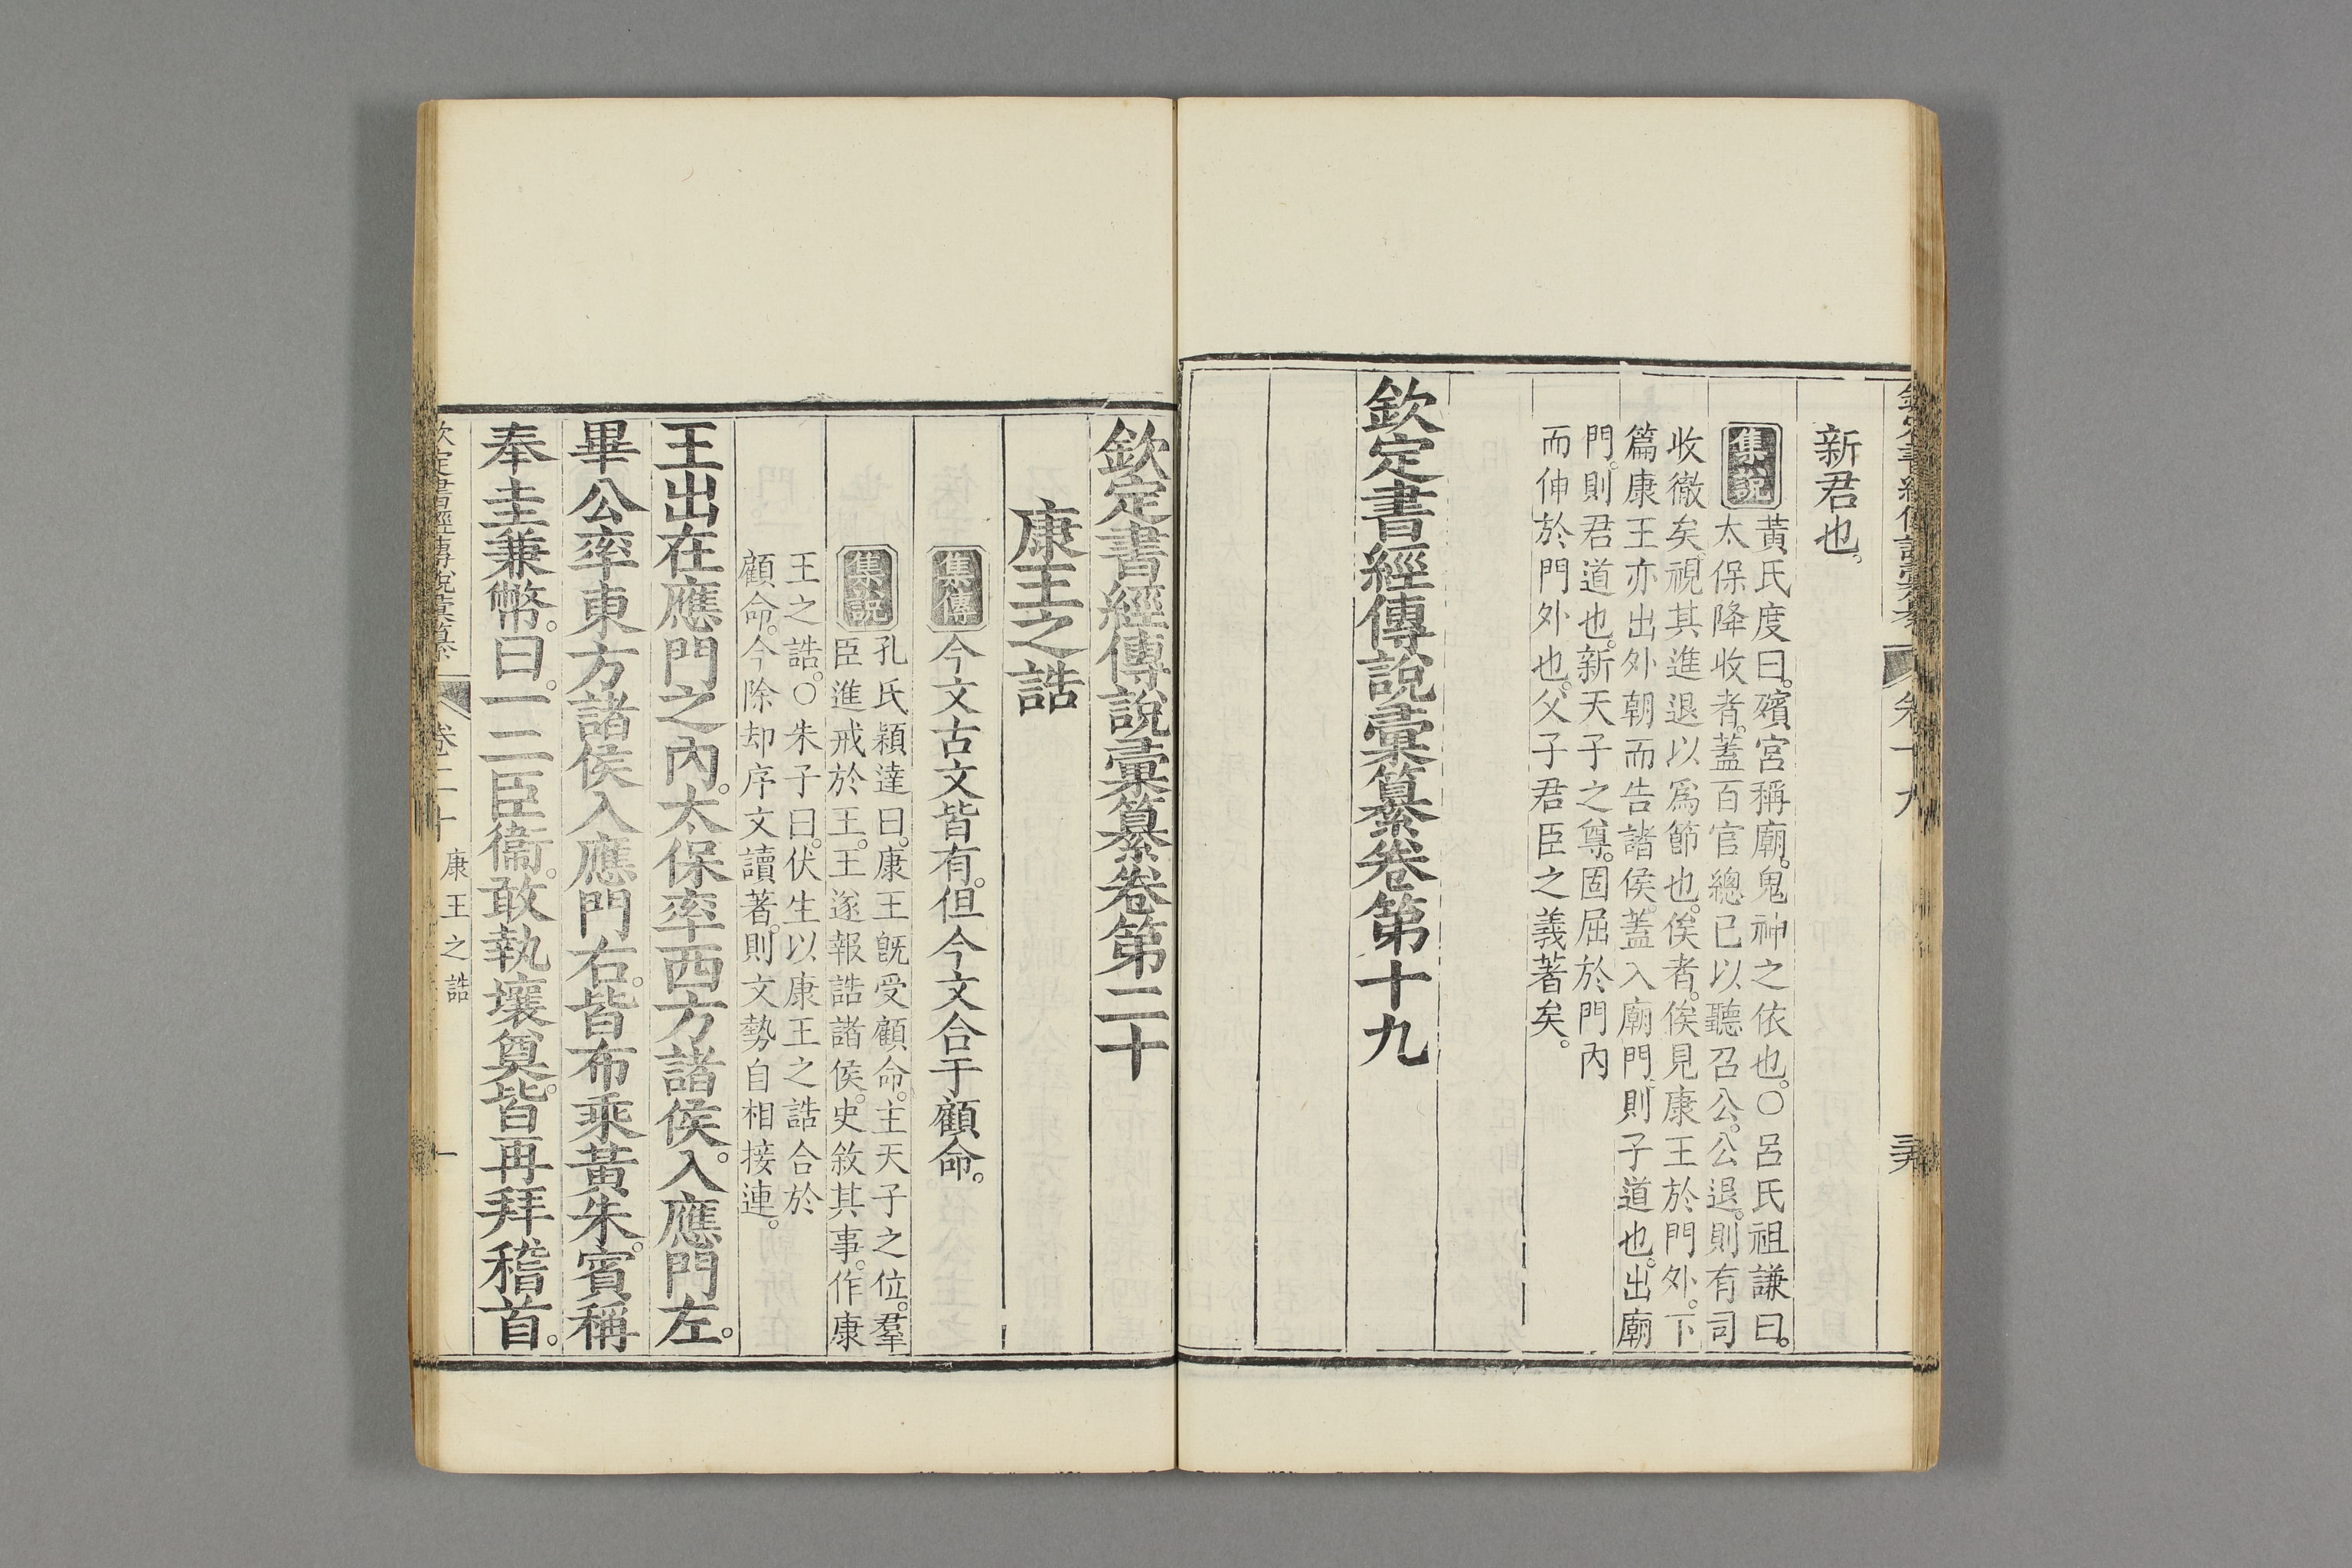 新君也。
集說
黃氏度曰。殯宮稱廟。鬼神之依也。○呂氏祖謙曰。
太保降收者。蓋百官總已以聽召公。公退。則有司
收徹矣。視其進退以爲節也。俟者。俟見康王於門外。下
篇康王亦出外朝而告諸侯。蓋入廟門。則子道也。出廟
門。則君道也。新天子之尊。固屈於門內
而伸於門外也。父子君臣之義著矣。
欽定書經傳說彙纂卷第十九
欽定書經傳說彙纂卷第二十
康王之誥
集傳
今文古文皆有。但今文合于顧命。
集說
孔氏穎達曰。康王旣受顧命。主天子之位。羣
臣進戒於王。王遂報誥諸侯。史敘其事。作康
王之誥。○朱子曰。伏生以康王之誥合於
顧命。今除却序文讀著。則文勢自相接連。
王出在應門之內。太保率西方諸侯。入應門左。
畢公率東方諸侯入應門右。皆布乘黃朱。賓稱
奉圭兼幣。曰。一二臣衞。敢執壤奠。皆再拜稽首。
欽定書經傳說彙纂 卷二十 康王之誥 一